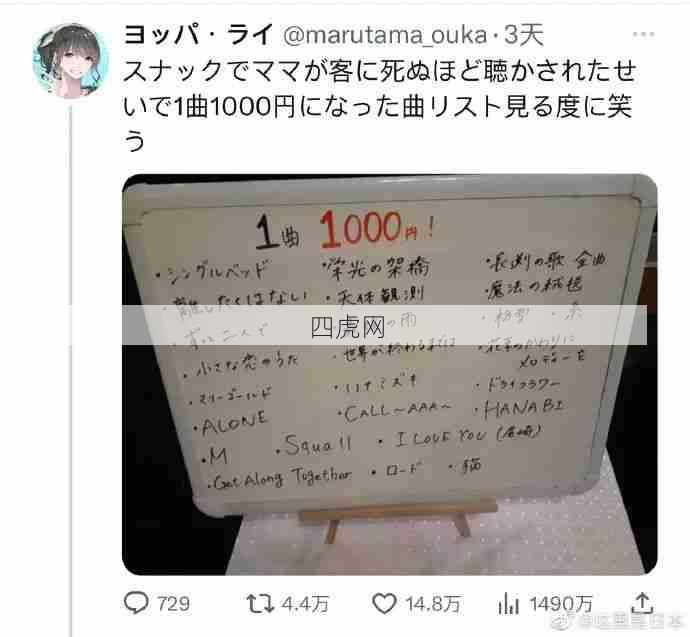 ヨッパ・ライ @marutama_ouka·3天
スナックでママが客に死ぬほど聴かされたせ
いで1曲1000円になった曲リスト見る度に笑
う
1曲 1000円!
・シングルベッド ・栄光の架橋 ・長渕の歌 全曲
・離したくはない ・天体観測 ・魔法の絨毯
の雨 ・糸
四虎网
・小さな恋のうた ・世界が終わるまでは ・花束のかわりに
メロディーを
・マリーゴールド ・ハナミズキ ・ドライフラワー
・ALONE ・CALL〜AAA〜 ・HANABI
・M ・Squall ・I LOVE YOU (尾崎)
・Get Along Together ・ロード ・猫
729 4.4万 14.8万 1490万
@这里是日本